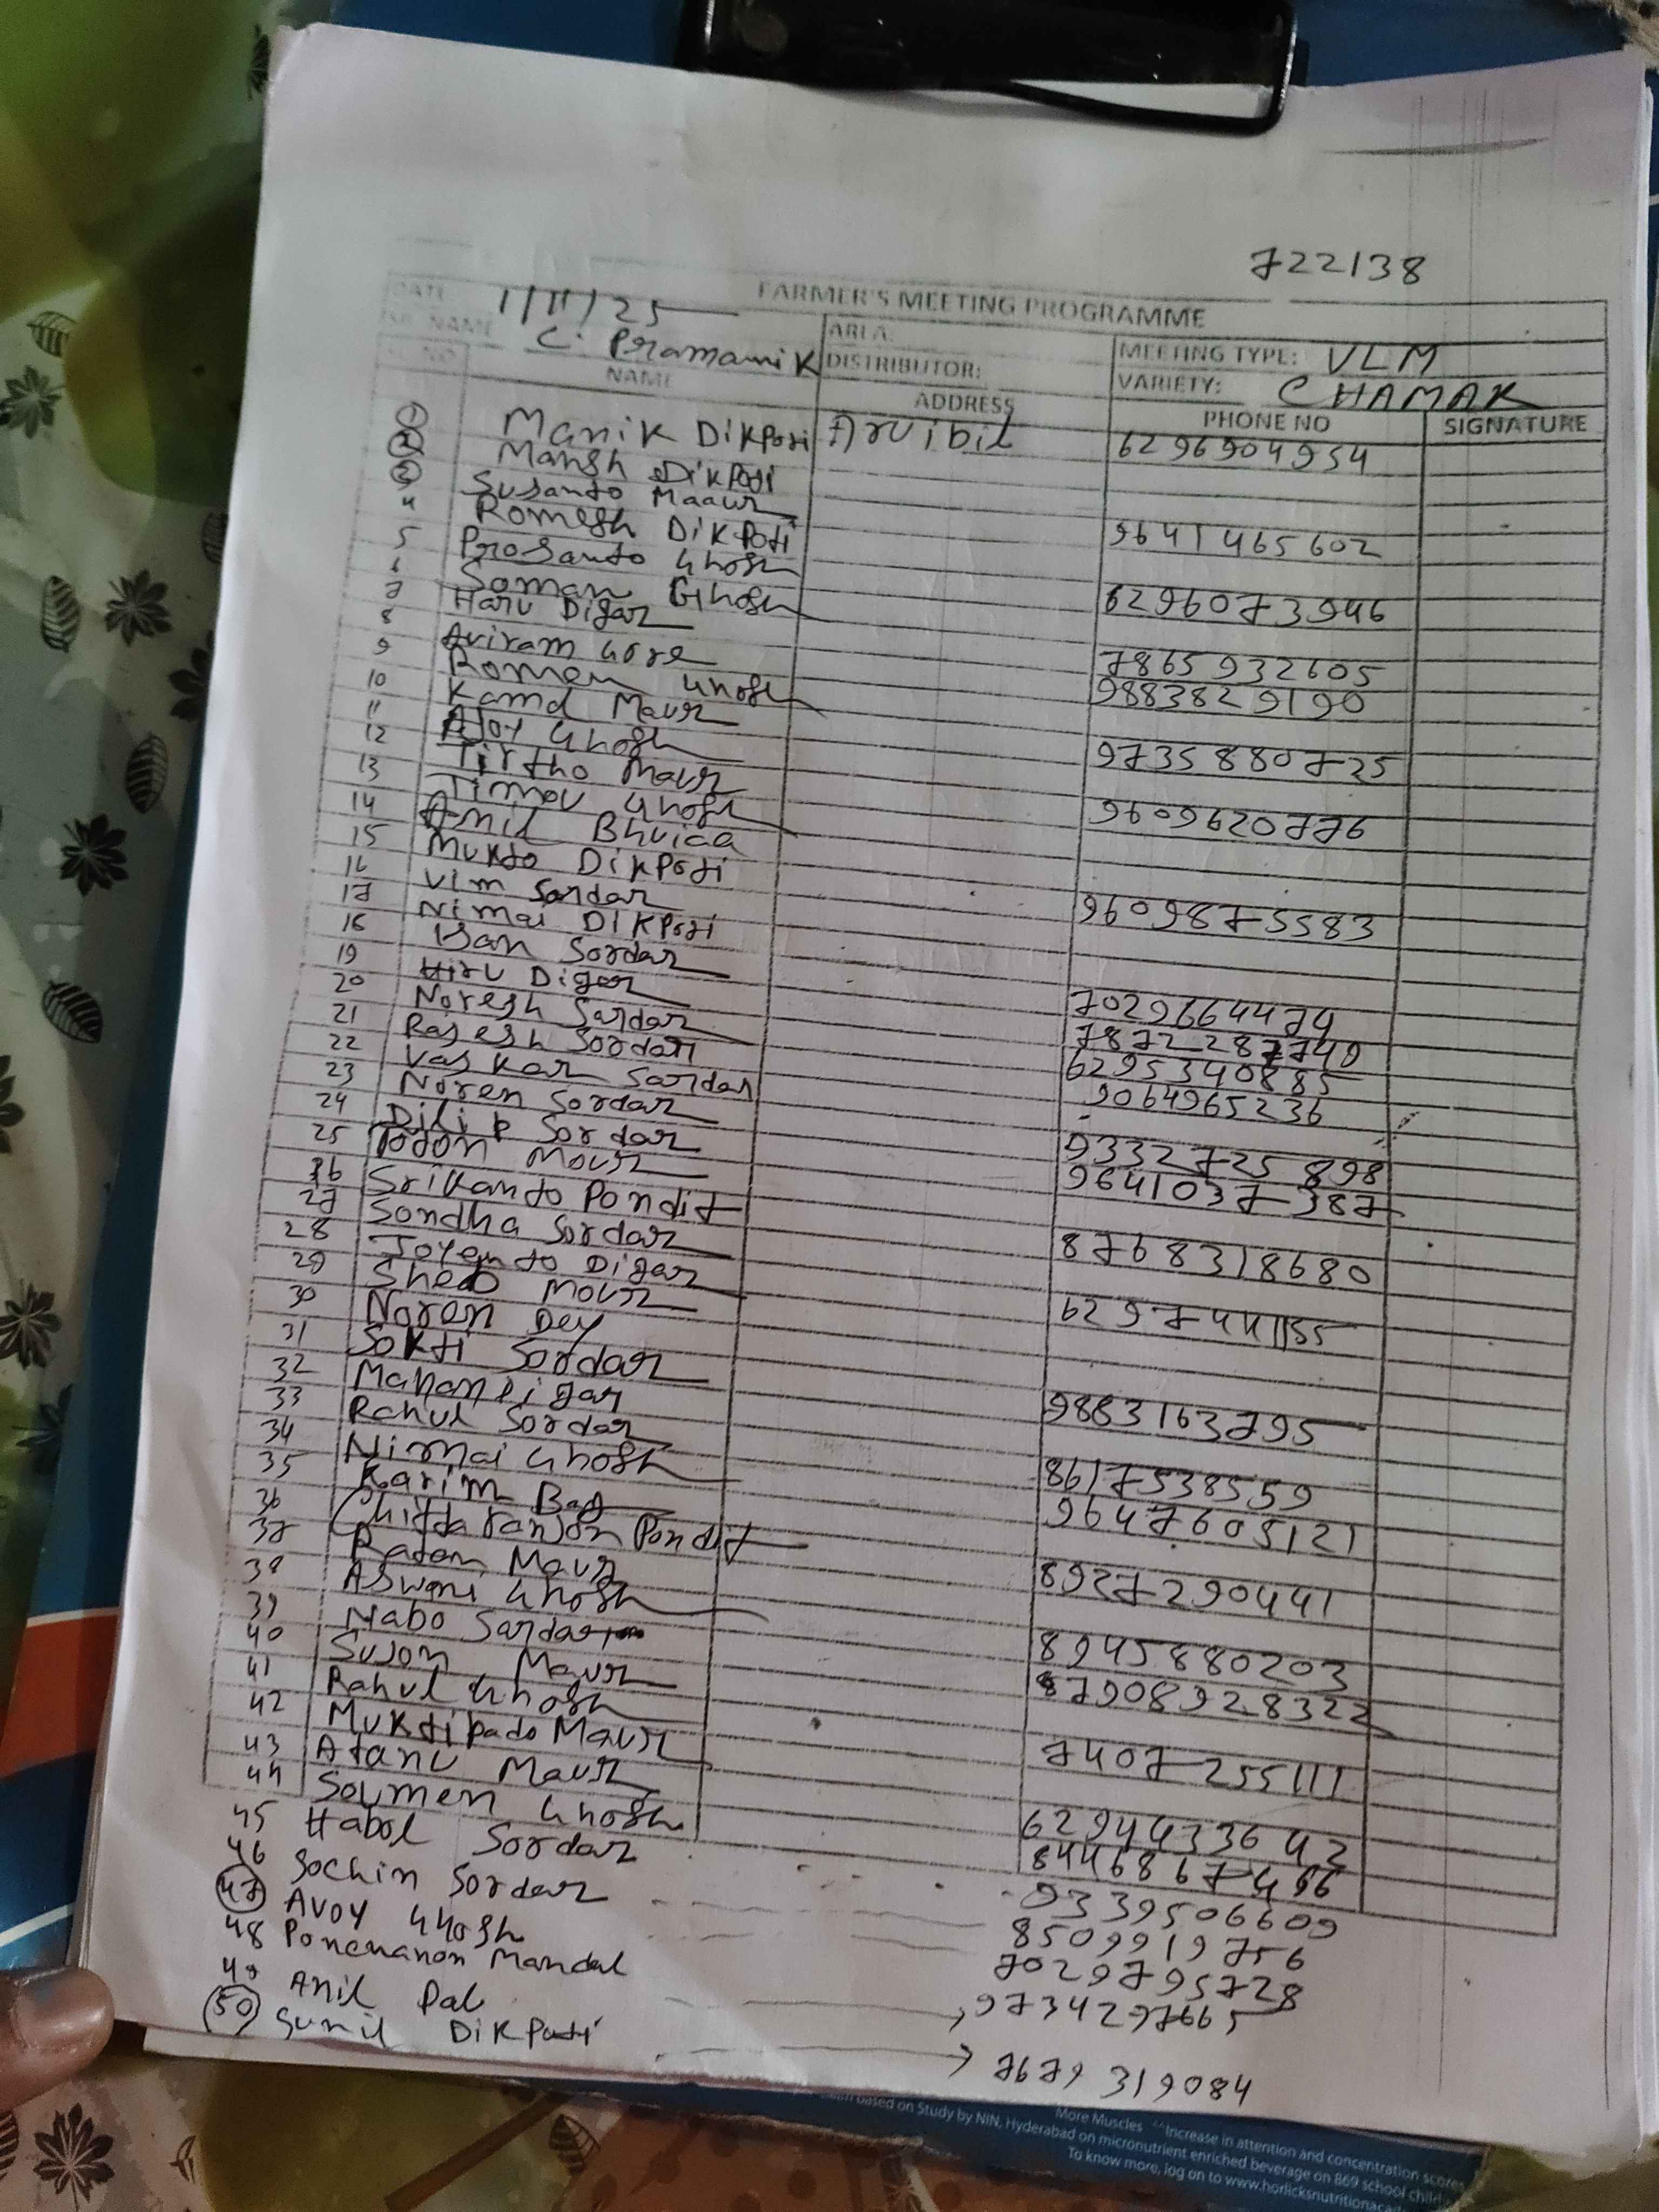 722138
FARMER'S MEETING PROGRAMME
DATE 1/11/25 AREA: MEETING TYPE: VLM
SR. NAME C. Pramanik DISTRIBUTOR: VARIETY: CHAMAK
SL. NO NAME ADDRESS PHONE NO SIGNATURE
1 Manik DikPoti Arvibil 6296904954
2 Mansh DikPoti
3 Susanto Maaur
4 Romesh DikPoti 9641465602
5 Prosanto Ghosh
6 Soman Ghosh 6296073946
7 Haru Digar
8 Aviram Gore 7865932605
9 Romen Ghosh 9883829190
10 Kamal Maur
11 Ajoy Ghosh 9735880725
12 Tirtho Maur
13 Ghosh 9609620776
14 Anil Bhuiaa
15 Mukto DikPoti
16 Vim Sordar 9609875583
17 Nimai DIKPoti
18 Sordar
19 Hiru Digar 7029664474
20 Noresh Sardar
21 Rajesh Sordar 6295340885
22 Vaskar Sardar 9064965236
23 Noren Sordar
24 Dilip Sordar 9332725898
25 Toton Mour 9641037387
26 Srikanto Pondit
27 Sondha Sordar 8768318680
28 Joyento Digar
29 Sheb Mour 6297441155
30 Noren Dey
31 Sokti Sordar
32 Mahan Digar 9883163795
33 Rahul Sordar
34 Nirmai Ghosh 8617538559
35 Karim Bag 9647605121
36 Chittaranjon Pondit
37 Ratan Maur 8927290441
38 Aswani Ghosh
39 Nabo Sardar 8945880203
40 Sujon Maur 87908928322
41 Rahul Ghosh
42 Muktipado Maur 7407255111
43 Atanu Maur
44 Soumen Ghosh 6294433642
45 Habol Sordar
46 Sochin Sordar 9339506609
47 Avoy Ghosh 8509919756
48 Poncnanon Mandal 7029795728
49 Anil Pal 9734297665
50 Sunil DikPati 7679 319084
based on Study by NIN, Hyderabad on micronutrient enriched beverage on 869 school
More Muscles Increase in attention and concentration scores
To know more, log on to